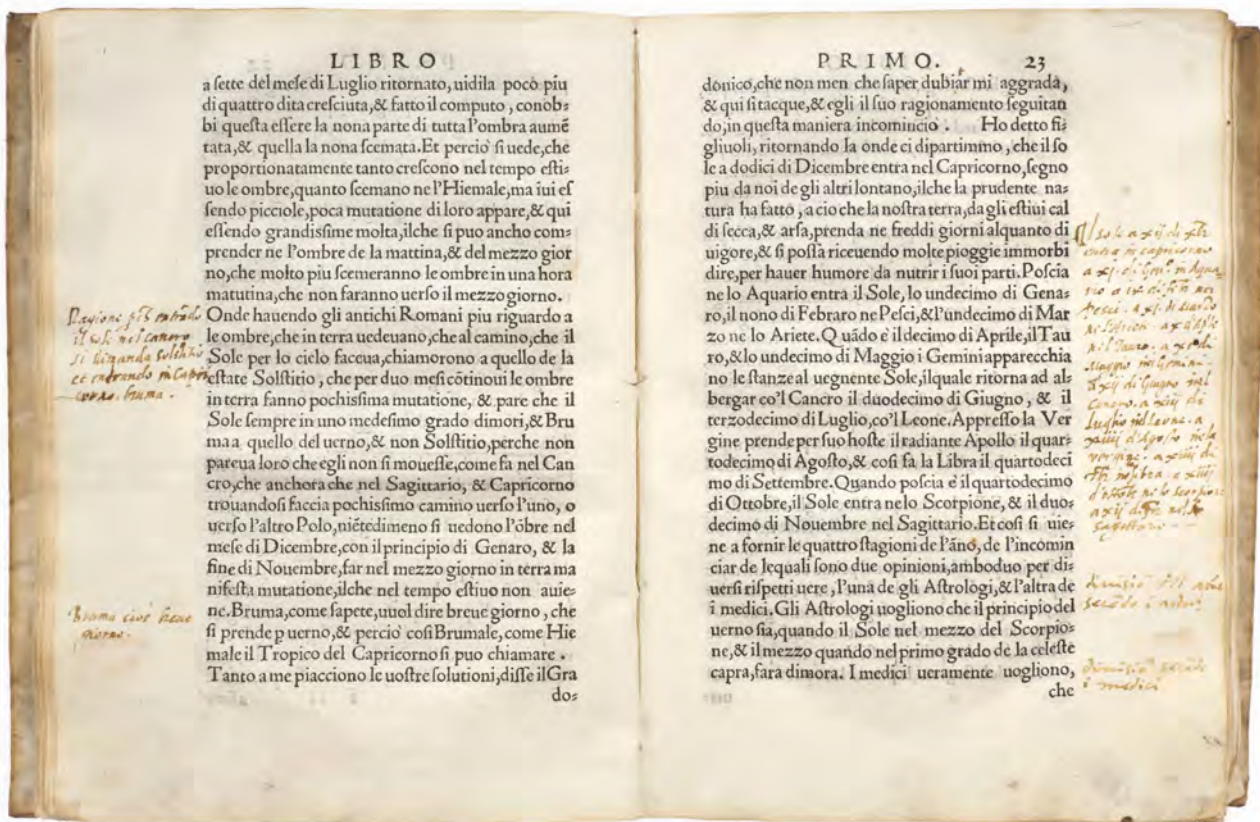 LIBRO
a ſette del meſe di Luglio ritornato, uidila pocò piu
di quattro dita creſciuta,& fatto il computo, conob⸗
bi queſta eſſere la nona parte di tutta l'ombra aumẽ
tata,& quella la nona ſcemata.Et percio ſi uede,che
proportionatamente tanto creſcono nel tempo eſti⸗
uo le ombre,quanto ſcemano ne l'Hiemale,ma iui eſ
ſendo picciole,poca mutatione di loro appare,& qui
eſſendo grandisſime molta,ilche ſi puo ancho com⸗
prender ne l'ombre de la mattina,& del mezzo gior
no,che molto piu ſcemeranno le ombre in una hora
matutina,che non faranno uerſo il mezzo giorno.
Onde hauendo gli antichi Romani piu riguardo a
le ombre,che in terra uedeuano,che al camino,che il
Sole per lo cielo faceua,chiamorono a quello de la
eſtate Solſtitio, che per duo meſi cõtinoui le ombre
in terra fanno pochisſima mutatione, & pare che il
Sole ſempre in uno medeſimo grado dimori,& Bru
ma a quello del uerno,& non Solſtitio,perche non
pareua loro che egli non ſi moueſſe,come fa nel Can
cro,che anchora che nel Sagittario, & Capricorno
trouandoſi faccia pochisſimo camino uerſo l'uno, o
uerſo l'altro Polo,niẽtedimeno ſi uedono l'õbre nel
meſe di Dicembre,con il principio di Genaro, & la
fine di Nouembre,far nel mezzo giorno in terra ma
nifeſta mutatione,ilche nel tempo eſtiuo non auie⸗
ne.Bruma,come ſapete,uuol dire breue giorno, che
ſi prende p uerno,& percio coſi Brumale, come Hie
male il Tropico del Capricorno ſi puo chiamare .
Tanto a me piacciono le uoſtre ſolutioni,diſſe il Gra
do⸗
Ragione entrãdo
il sole nel cancro
si dimanda solstitio
et entrando in Capri
corno. bruma .
Bruma cioè breue
giorno.
PRIMO. 23
donico,che non men che ſaper dubiar mi aggrada,
& qui ſi tacque,& egli il ſuo ragionamento ſeguitan
do,in queſta maniera incominciò . Ho detto fi⸗
gliuoli, ritornando la onde ci dipartimmo, che il ſo
le a dodici di Dicembre entra nel Capricorno,ſegno
piu da noi de gli altri lontano,ilche la prudente na⸗
tura ha fatto, a cio che la noſtra terra,da gli eſtiui cal
di ſecca,& arſa,prenda ne freddi giorni alquanto di
uigore,& ſi posſa riceuendo molte pioggie immorbi
dire,per hauer humore da nutrir i ſuoi parti. Poſcia
ne lo Aquario entra il Sole, lo undecimo di Gena⸗
ro,il nono di Febraro ne Peſci,&l'undecimo di Mar
zo ne lo Ariete. Quãdo è il decimo di Aprile,il Tau
ro,&lo undecimo di Maggio i Gemini apparecchia
no le ſtanze al uegnente Sole,ilquale ritorna ad al⸗
bergar co'l Cancro il duodecimo di Giugno, & il
terzodecimo di Luglio,co'l Leone. Appreſſo la Ver
gine prende per ſuo hoſte il radiante Apollo il quar⸗
todecimo di Agoſto,& coſi fa la Libra il quartodeci
mo di Settembre. Quando poſcia è il quartodecimo
di Ottobre,il Sole entra nelo Scorpione, & il duo⸗
decimo di Nouembre nel Sagittario.Et coſi ſi uie⸗
ne a fornir le quattro ſtagioni de l'ãno, de l'incomin
ciar de lequali ſono due opinioni,amboduo per di⸗
uerſi riſpetti uere , l'una de gli Aſtrologi,&l'altra de
i medici.Gli Aſtrologi uogliono che il principio del
uerno ſia,quando il Sole nel mezzo del Scorpio⸗
ne,& il mezzo quando nel primo grado de la celeſte
capra,fara dimora. I medici ueramente uogliono,
che
Il sole a xij di
entra in capricorno
a xj. di in Aqua
rio a ix di
pesci . a xj. di Marzo
a x d'Aple
nel Tauro. a xj di
Maggio in Gemini
a xij di Giugno nel
Cancro. a xiij di
Luglio nel Leone. a
xiiij d'Agosto nela
vergine. a xiiij di
libra. a xiiij
d'ottobre ne lo scorpione
a xij nel
sagittario
secãdo i
secãdo
i medici